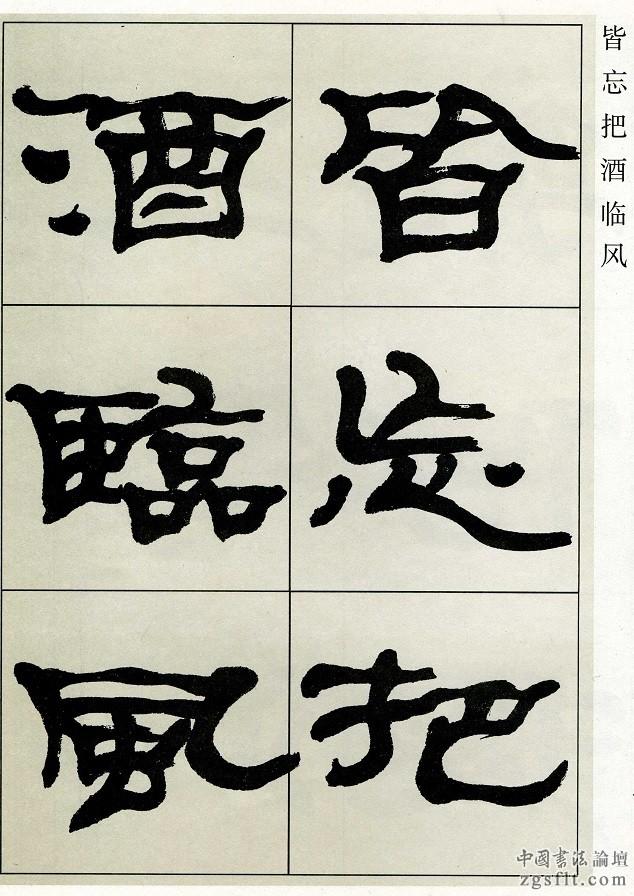 皆忘把酒临风
皆忘把
酒臨風
中國書法論壇
zgsflt.com